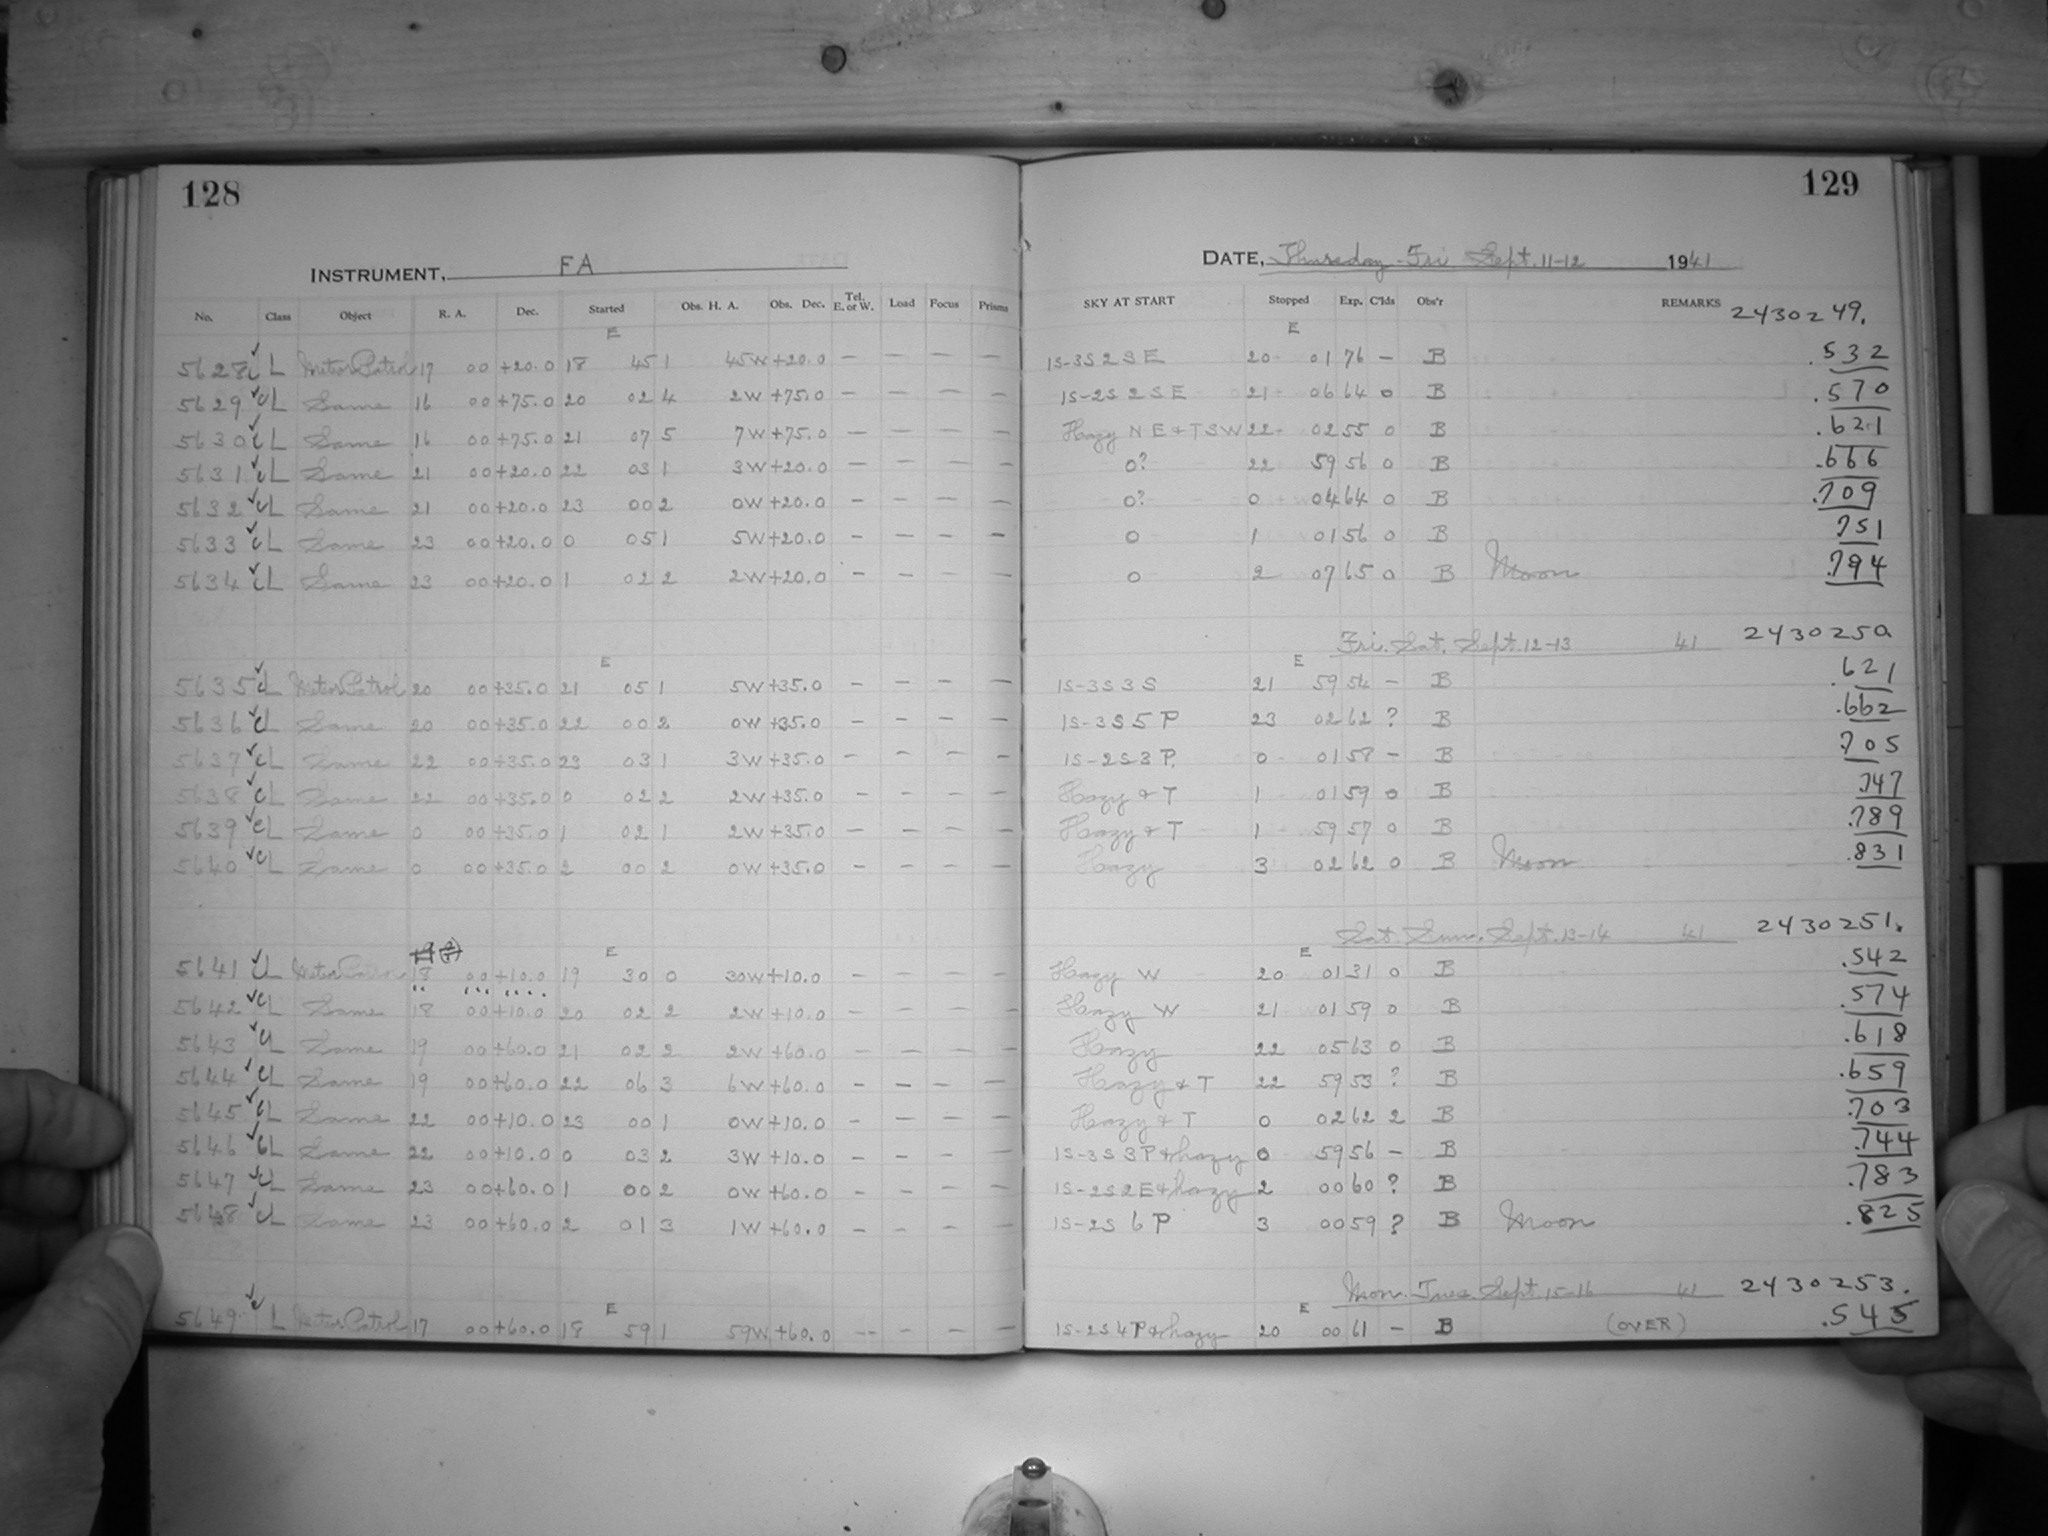 128
INSTRUMENT, FA
No. Class Object R. A. Dec. Started Obs. H. A. Obs. Dec. Tel. E. or W. Load Focus Prisms
E
5628 cL Meteor Patrol 17 00 +20.0 18 45 1 45W +20.0 — — — —
5629 cL Same 16 00 +75.0 20 02 4 2W +75.0 — — — —
5630 cL Same 16 00 +75.0 21 07 5 7W +75.0 — — — —
5631 cL Same 21 00 +20.0 22 03 1 3W +20.0 — — — —
5632 cL Same 21 00 +20.0 23 00 2 0W +20.0 — — — —
5633 cL Same 23 00 +20.0 0 05 1 5W +20.0 — — — —
5634 cL Same 23 00 +20.0 1 02 2 2W +20.0 — — — —
E
5635 cL Meteor Patrol 20 00 +35.0 21 05 1 5W +35.0 — — — —
5636 cL Same 20 00 +35.0 22 00 2 0W +35.0 — — — —
5637 cL Same 22 00 +35.0 23 03 1 3W +35.0 — — — —
5638 cL Same 22 00 +35.0 0 02 2 2W +35.0 — — — —
5639 cL Same 0 00 +35.0 1 02 1 2W +35.0 — — — —
5640 cL Same 0 00 +35.0 2 00 2 0W +35.0 — — — —
E
5641 cL Meteor Patrol 18 00 +10.0 19 30 0 30W +10.0 — — — —
5642 cL Same 18 00 +10.0 20 02 2 2W +10.0 — — — —
5643 cL Same 19 00 +60.0 21 02 2 2W +60.0 — — — —
5644 cL Same 19 00 +60.0 22 06 3 6W +60.0 — — — —
5645 cL Same 22 00 +10.0 23 00 1 0W +10.0 — — — —
5646 cL Same 22 00 +10.0 0 03 2 3W +10.0 — — — —
5647 cL Same 23 00 +60.0 1 00 2 0W +60.0 — — — —
5648 cL Same 23 00 +60.0 2 01 3 1W +60.0 — — — —
E
5649 cL Meteor Patrol 17 00 +60.0 18 59 1 59W +60.0 — — — —
129
DATE, Thursday-Fri Sept. 11-12 1941
SKY AT START Stopped Exp. C'lds Obs'r REMARKS 2430249.
E
1S-3S 2 S E 20 01 76 — B .532
1S-2S 2 S E 21 06 64 0 B .570
Hazy N E & T S W 22 02 55 0 B .621
0? 22 59 56 0 B .666
0? 0 04 64 0 B .709
0 1 01 56 0 B .751
0 2 07 65 0 B Moon .794
Fri. Sat. Sept. 12-13 41 2430250
E
1S-3S 3 S 21 59 54 — B .621
1S-3S 5 P 23 02 62 ? B .662
1S-2S 3 P. 0 01 58 — B .705
Hazy & T 1 01 59 0 B .747
Hazy & T 1 59 57 0 B .789
Hazy 3 02 62 0 B Moon .831
Sat. Sun. Sept. 13-14 41 2430251.
E
Hazy W 20 01 31 0 B .542
Hazy W 21 01 59 0 B .574
Hazy 22 05 63 0 B .618
Hazy & T 22 59 53 ? B .659
Hazy & T 0 02 62 2 B .703
1S-3S 3 P & hazy 0 59 56 — B .744
1S-2S 2 E & hazy 2 00 60 ? B .783
1S-2S 6 P 3 00 59 ? B Moon .825
Mon. Tues. Sept. 15-16 41 2430253.
E
1S-2S 4 P & hazy 20 00 61 — B (OVER) .545